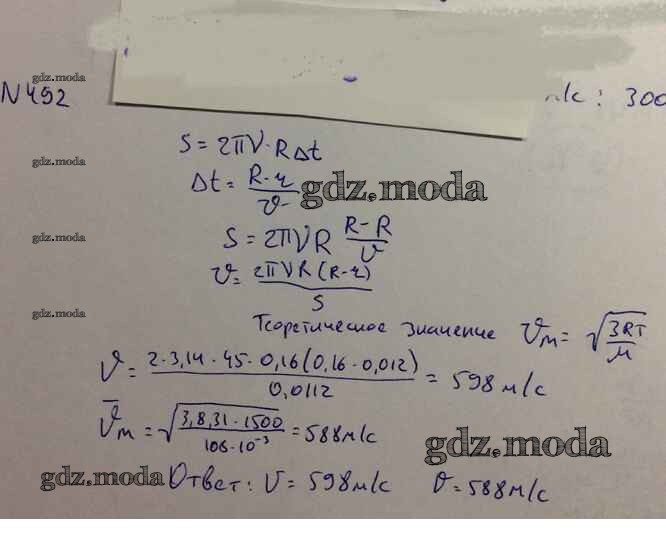 gdz.moda
N492 м/с: 300
S = 2πν·RΔt
gdz.moda
Δt = (R-r)/v
gdz.moda
S = 2πνR (R-R)/v
gdz.moda
v = 2πνR(R-r)/S
gdz.moda
Теоретическое значение v_м = √(3RT/M)
v = 2·3,14·45·0,16(0,16-0,012)/0,0112 = 598 м/с
v̄_м = √(3,8,31·1500/(108·10⁻³)) = 588 м/с
gdz.moda
gdz.moda
Ответ: v = 598 м/с v = 588 м/с